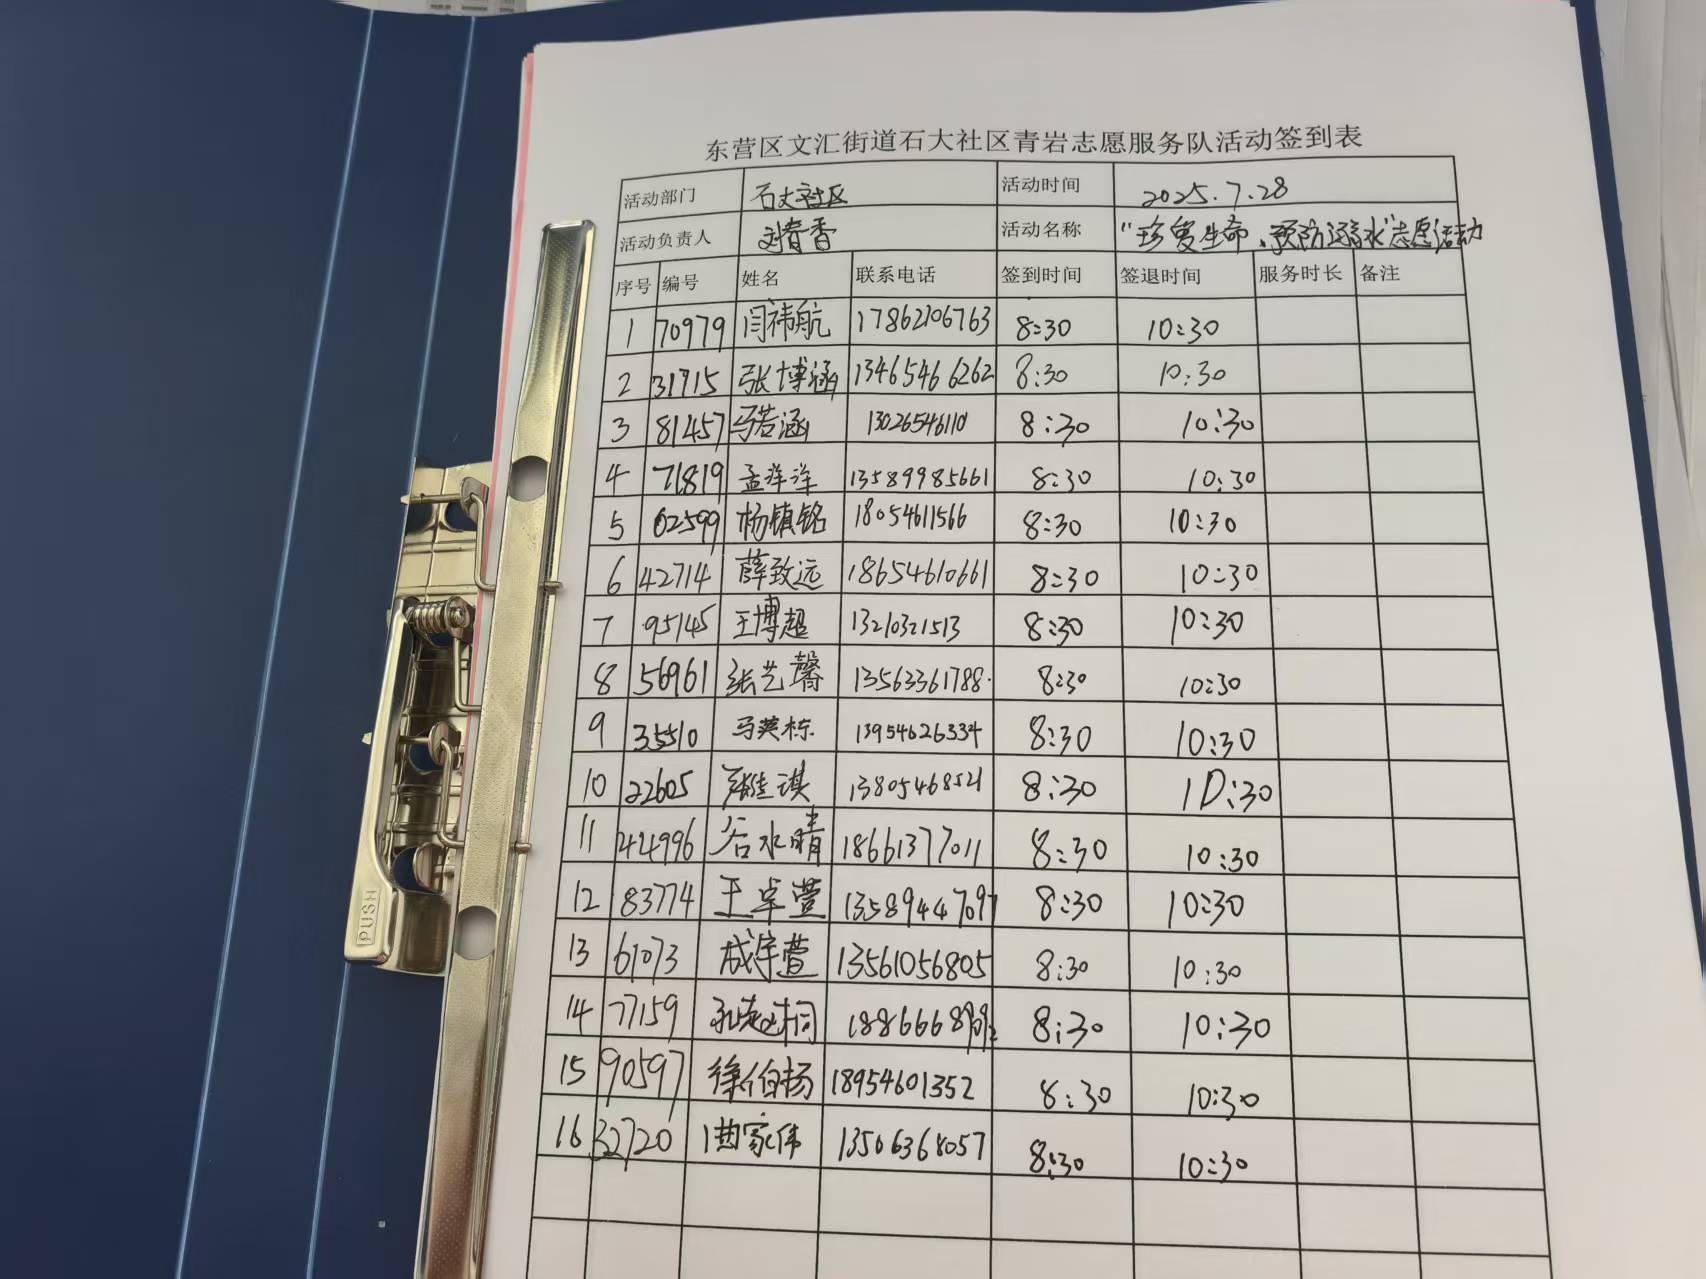 东营区文汇街道石大社区青岩志愿服务队活动签到表
活动部门 石大社区 活动时间 2025.7.28
活动负责人 刘春香 活动名称 "珍爱生命、预防溺水"志愿活动
序号 编号 姓名 联系电话 签到时间 签退时间 服务时长 备注
1 70979 闫祎航 17862106763 8:30 10:30
2 31715 张博涵 13465466262 8:30 10:30
3 81457 马若涵 13026546110 8:30 10:30
4 71819 孟洋洋 13589985661 8:30 10:30
5 02599 杨镇铭 18054611566 8:30 10:30
6 42714 薛致远 18654610661 8:30 10:30
7 95145 王博超 13210321513 8:30 10:30
8 56961 张艺馨 13563361788 8:30 10:30
9 35510 马英栋 13954626334 8:30 10:30
10 22605 13805468521 8:30 10:30
11 424996 谷水晴 18661377011 8:30 10:30
12 83774 王卓萱 13589447097 8:30 10:30
13 61073 成宇萱 13561056805 8:30 10:30
14 77159 8:30 10:30
15 90597 徐伯杨 18954601352 8:30 10:30
16 32720 曲家伟 13506368057 8:30 10:30
PUSH